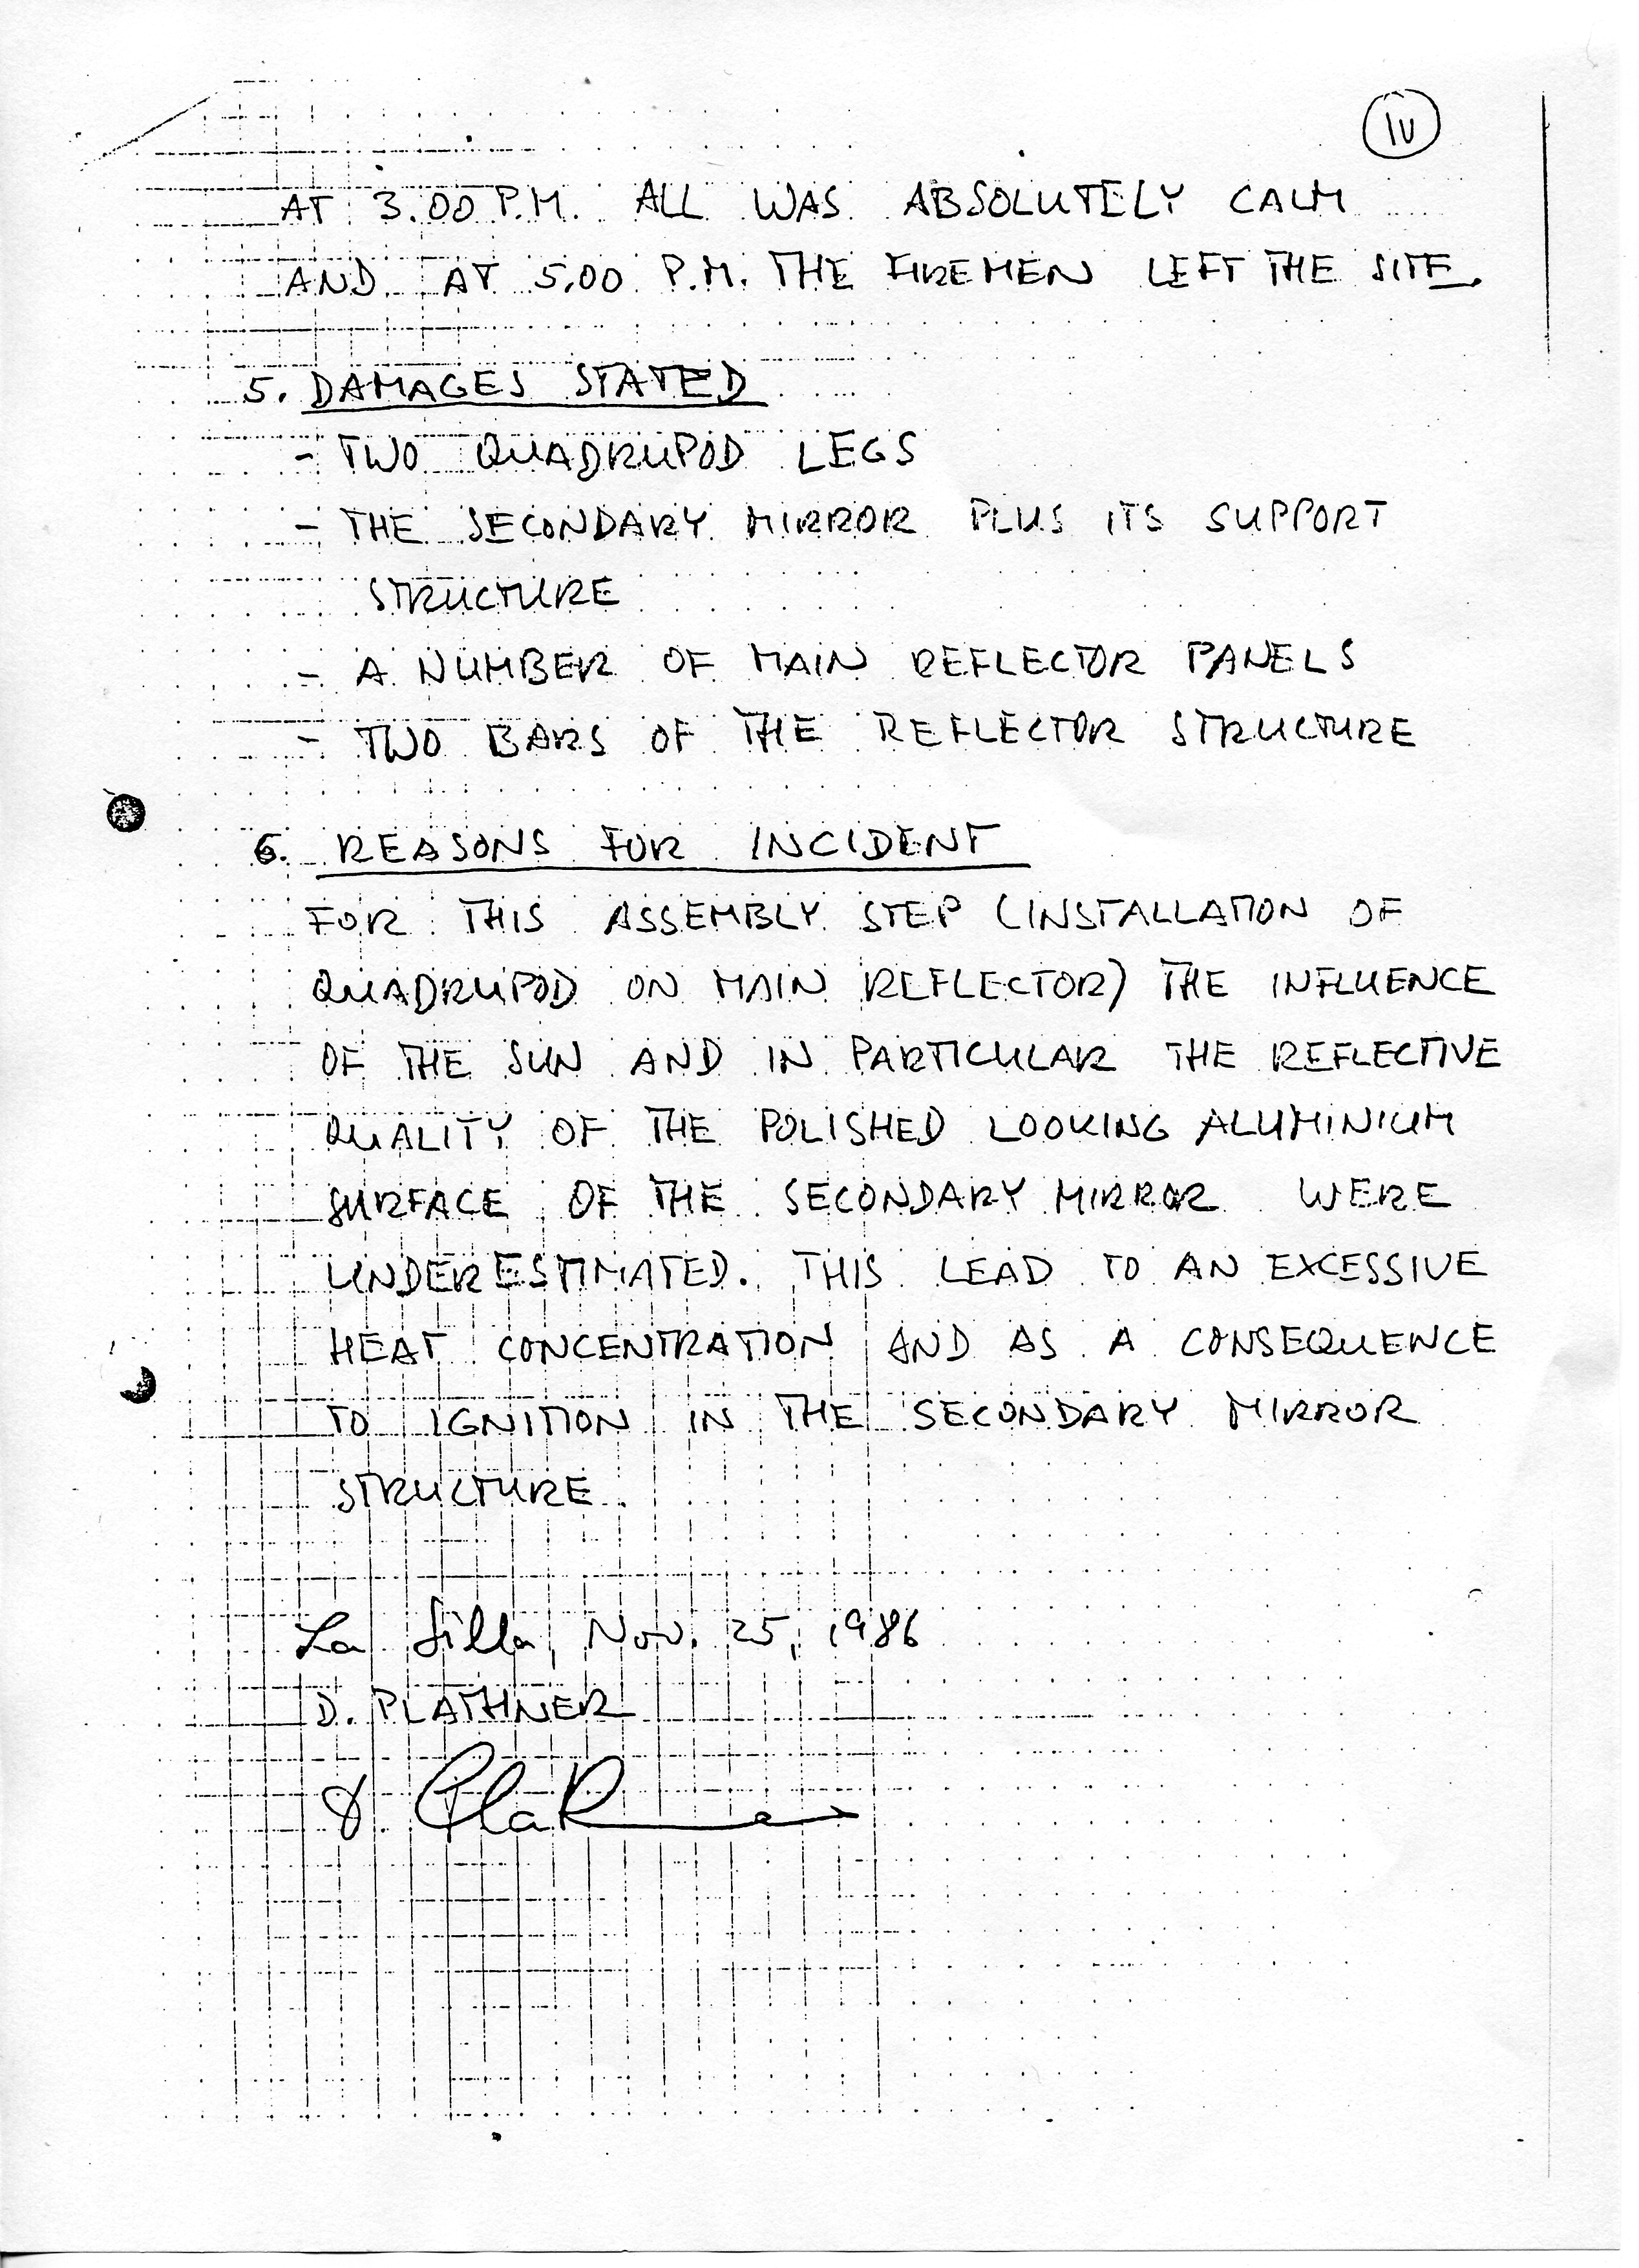 IV
AT 3.00 P.M. ALL WAS ABSOLUTELY CALM
AND AT 5.00 P.M. THE FIREMEN LEFT THE SITE.
5. DAMAGES STATED
- TWO QUADRUPOD LEGS
- THE SECONDARY MIRROR PLUS ITS SUPPORT
STRUCTURE
- A NUMBER OF MAIN REFLECTOR PANELS
- TWO BARS OF THE REFLECTOR STRUCTURE
6. REASONS FOR INCIDENT
FOR THIS ASSEMBLY STEP (INSTALLATION OF
QUADRUPOD ON MAIN REFLECTOR) THE INFLUENCE
OF THE SUN AND IN PARTICULAR THE REFLECTIVE
QUALITY OF THE POLISHED LOOKING ALUMINIUM
SURFACE OF THE SECONDARY MIRROR WERE
UNDERESTIMATED. THIS LEAD TO AN EXCESSIVE
HEAT CONCENTRATION AND AS A CONSEQUENCE
TO IGNITION IN THE SECONDARY MIRROR
STRUCTURE.
La Silla, Nov. 25, 1986
D. PLATHNER
D. Plathner